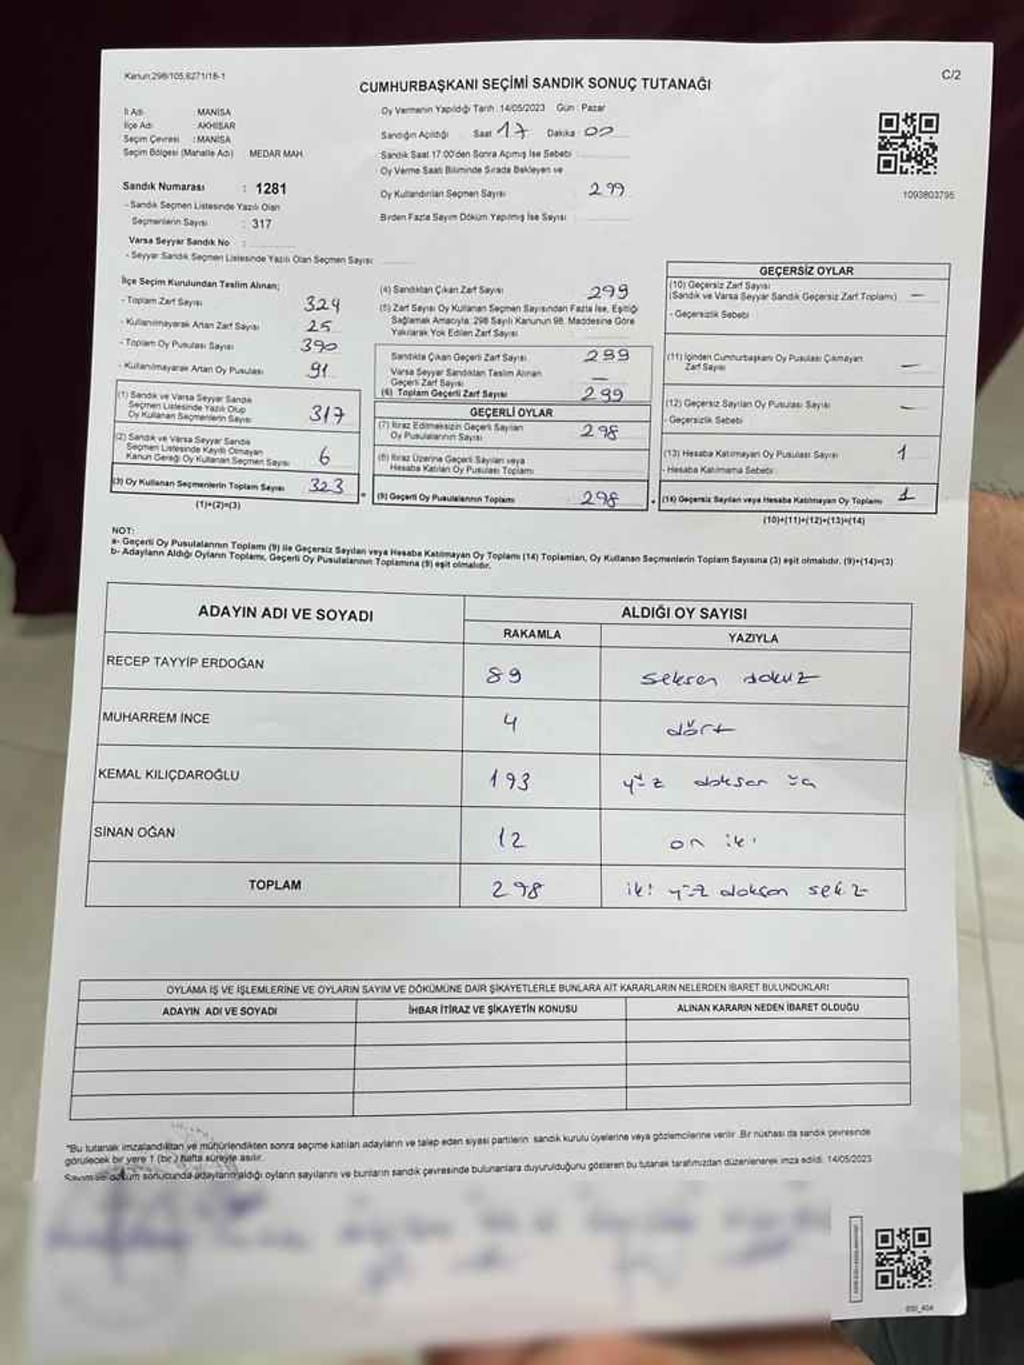 Kanun:298/105,6271/18-1
C/2
CUMHURBAŞKANI SEÇİMİ SANDIK SONUÇ TUTANAĞI
İl Adı : MANİSA
İlçe Adı : AKHİSAR
Seçim Çevresi : MANİSA
Seçim Bölgesi (Mahalle Adı) MEDAR MAH.
Sandık Numarası : 1281
- Sandık Seçmen Listesinde Yazılı Olan
Seçmenlerin Sayısı : 317
Varsa Seyyar Sandık No :
- Seyyar Sandık Seçmen Listesinde Yazılı Olan Seçmen Sayısı:
Oy Vermenin Yapıldığı Tarih :14/05/2023 Gün : Pazar
Sandığın Açıldığı Saat 17 Dakika 00
Sandık Saat 17:00'den Sonra Açılmış İse Sebebi :
Oy Verme Saati Bitiminde Sırada Bekleyen ve
Oy Kullandırılan Seçmen Sayısı 299
Birden Fazla Sayım Döküm Yapılmış İse Sayısı :
1093803795
İlçe Seçim Kurulundan Teslim Alınan;
- Toplam Zarf Sayısı 324
- Kullanılmayarak Artan Zarf Sayısı 25
- Toplam Oy Pusulası Sayısı 390
- Kullanılmayarak Artan Oy Pusulası 91
(1) Sandık ve Varsa Seyyar Sandık
Seçmen Listesinde Yazılı Olup
Oy Kullanan Seçmenlerin Sayısı 317
(2) Sandık ve Varsa Seyyar Sandık
Seçmen Listesinde Kayıtlı Olmayan
Kanun Gereği Oy Kullanan Seçmen Sayısı 6
(3) Oy Kullanan Seçmenlerin Toplam Sayısı 323
(1)+(2)=(3)
(4) Sandıktan Çıkan Zarf Sayısı 299
(5) Zarf Sayısı Oy Kullanan Seçmen Sayısından Fazla İse, Eşitliği
Sağlamak Amacıyla; 298 Sayılı Kanunun 98. Maddesine Göre
Yakılarak Yok Edilen Zarf Sayısı
Sandıkta Çıkan Geçerli Zarf Sayısı 299
Varsa Seyyar Sandıktan Teslim Alınan
Geçerli Zarf Sayısı —
(6) Toplam Geçerli Zarf Sayısı 299
GEÇERLİ OYLAR
(7) İtiraz Edilmeksizin Geçerli Sayılan
Oy Pusulalarının Sayısı 298
(8) İtiraz Üzerine Geçerli Sayılan veya
Hesaba Katılan Oy Pusulası Toplamı
(9) Geçerli Oy Pusulalarının Toplamı 298
GEÇERSİZ OYLAR
(10) Geçersiz Zarf Sayısı
(Sandık ve Varsa Seyyar Sandık Geçersiz Zarf Toplamı) —
- Geçersizlik Sebebi
(11) İçinden Cumhurbaşkanı Oy Pusulası Çıkmayan
Zarf Sayısı —
(12) Geçersiz Sayılan Oy Pusulası Sayısı —
- Geçersizlik Sebebi
(13) Hesaba Katılmayan Oy Pusulası Sayısı 1
- Hesaba Katılmama Sebebi
(14) Geçersiz Sayılan veya Hesaba Katılmayan Oy Toplamı 1
(10)+(11)+(12)+(13)=(14)
NOT:
a- Geçerli Oy Pusulalarının Toplamı (9) ile Geçersiz Sayılan veya Hesaba Katılmayan Oy Toplamı (14) Toplamları, Oy Kullanan Seçmenlerin Toplam Sayısına (3) eşit olmalıdır. (9)+(14)=(3)
b- Adayların Aldığı Oyların Toplamı, Geçerli Oy Pusulalarının Toplamına (9) eşit olmalıdır.
ADAYIN ADI VE SOYADI ALDIĞI OY SAYISI
RAKAMLA YAZIYLA
RECEP TAYYİP ERDOĞAN 89 seksen dokuz
MUHARREM İNCE 4 dört
KEMAL KILIÇDAROĞLU 193 yüz doksan üç
SİNAN OĞAN 12 on iki
TOPLAM 298 iki yüz doksan sekiz
OYLAMA İŞ VE İŞLEMLERİNE VE OYLARIN SAYIM VE DÖKÜMÜNE DAİR ŞİKAYETLERLE BUNLARA AİT KARARLARIN NELERDEN İBARET BULUNDUKLARI
ADAYIN ADI VE SOYADI İHBAR İTİRAZ VE ŞİKAYETİN KONUSU ALINAN KARARIN NEDEN İBARET OLDUĞU
*Bu tutanak imzalandıktan ve mühürlendikten sonra seçime katılan adayların ve talep eden siyasi partilerin sandık kurulu üyelerine veya gözlemcilerine verilir. Bir nüshası da sandık çevresinde
görülecek bir yere 1 (bir) hafta süreyle asılır.
Sayım ve döküm sonucunda adayların aldığı oyların sayılarını ve bunların sandık çevresinde bulunanlara duyurulduğunu gösteren bu tutanak tarafımızdan düzenlenerek imza edildi. 14/05/2023